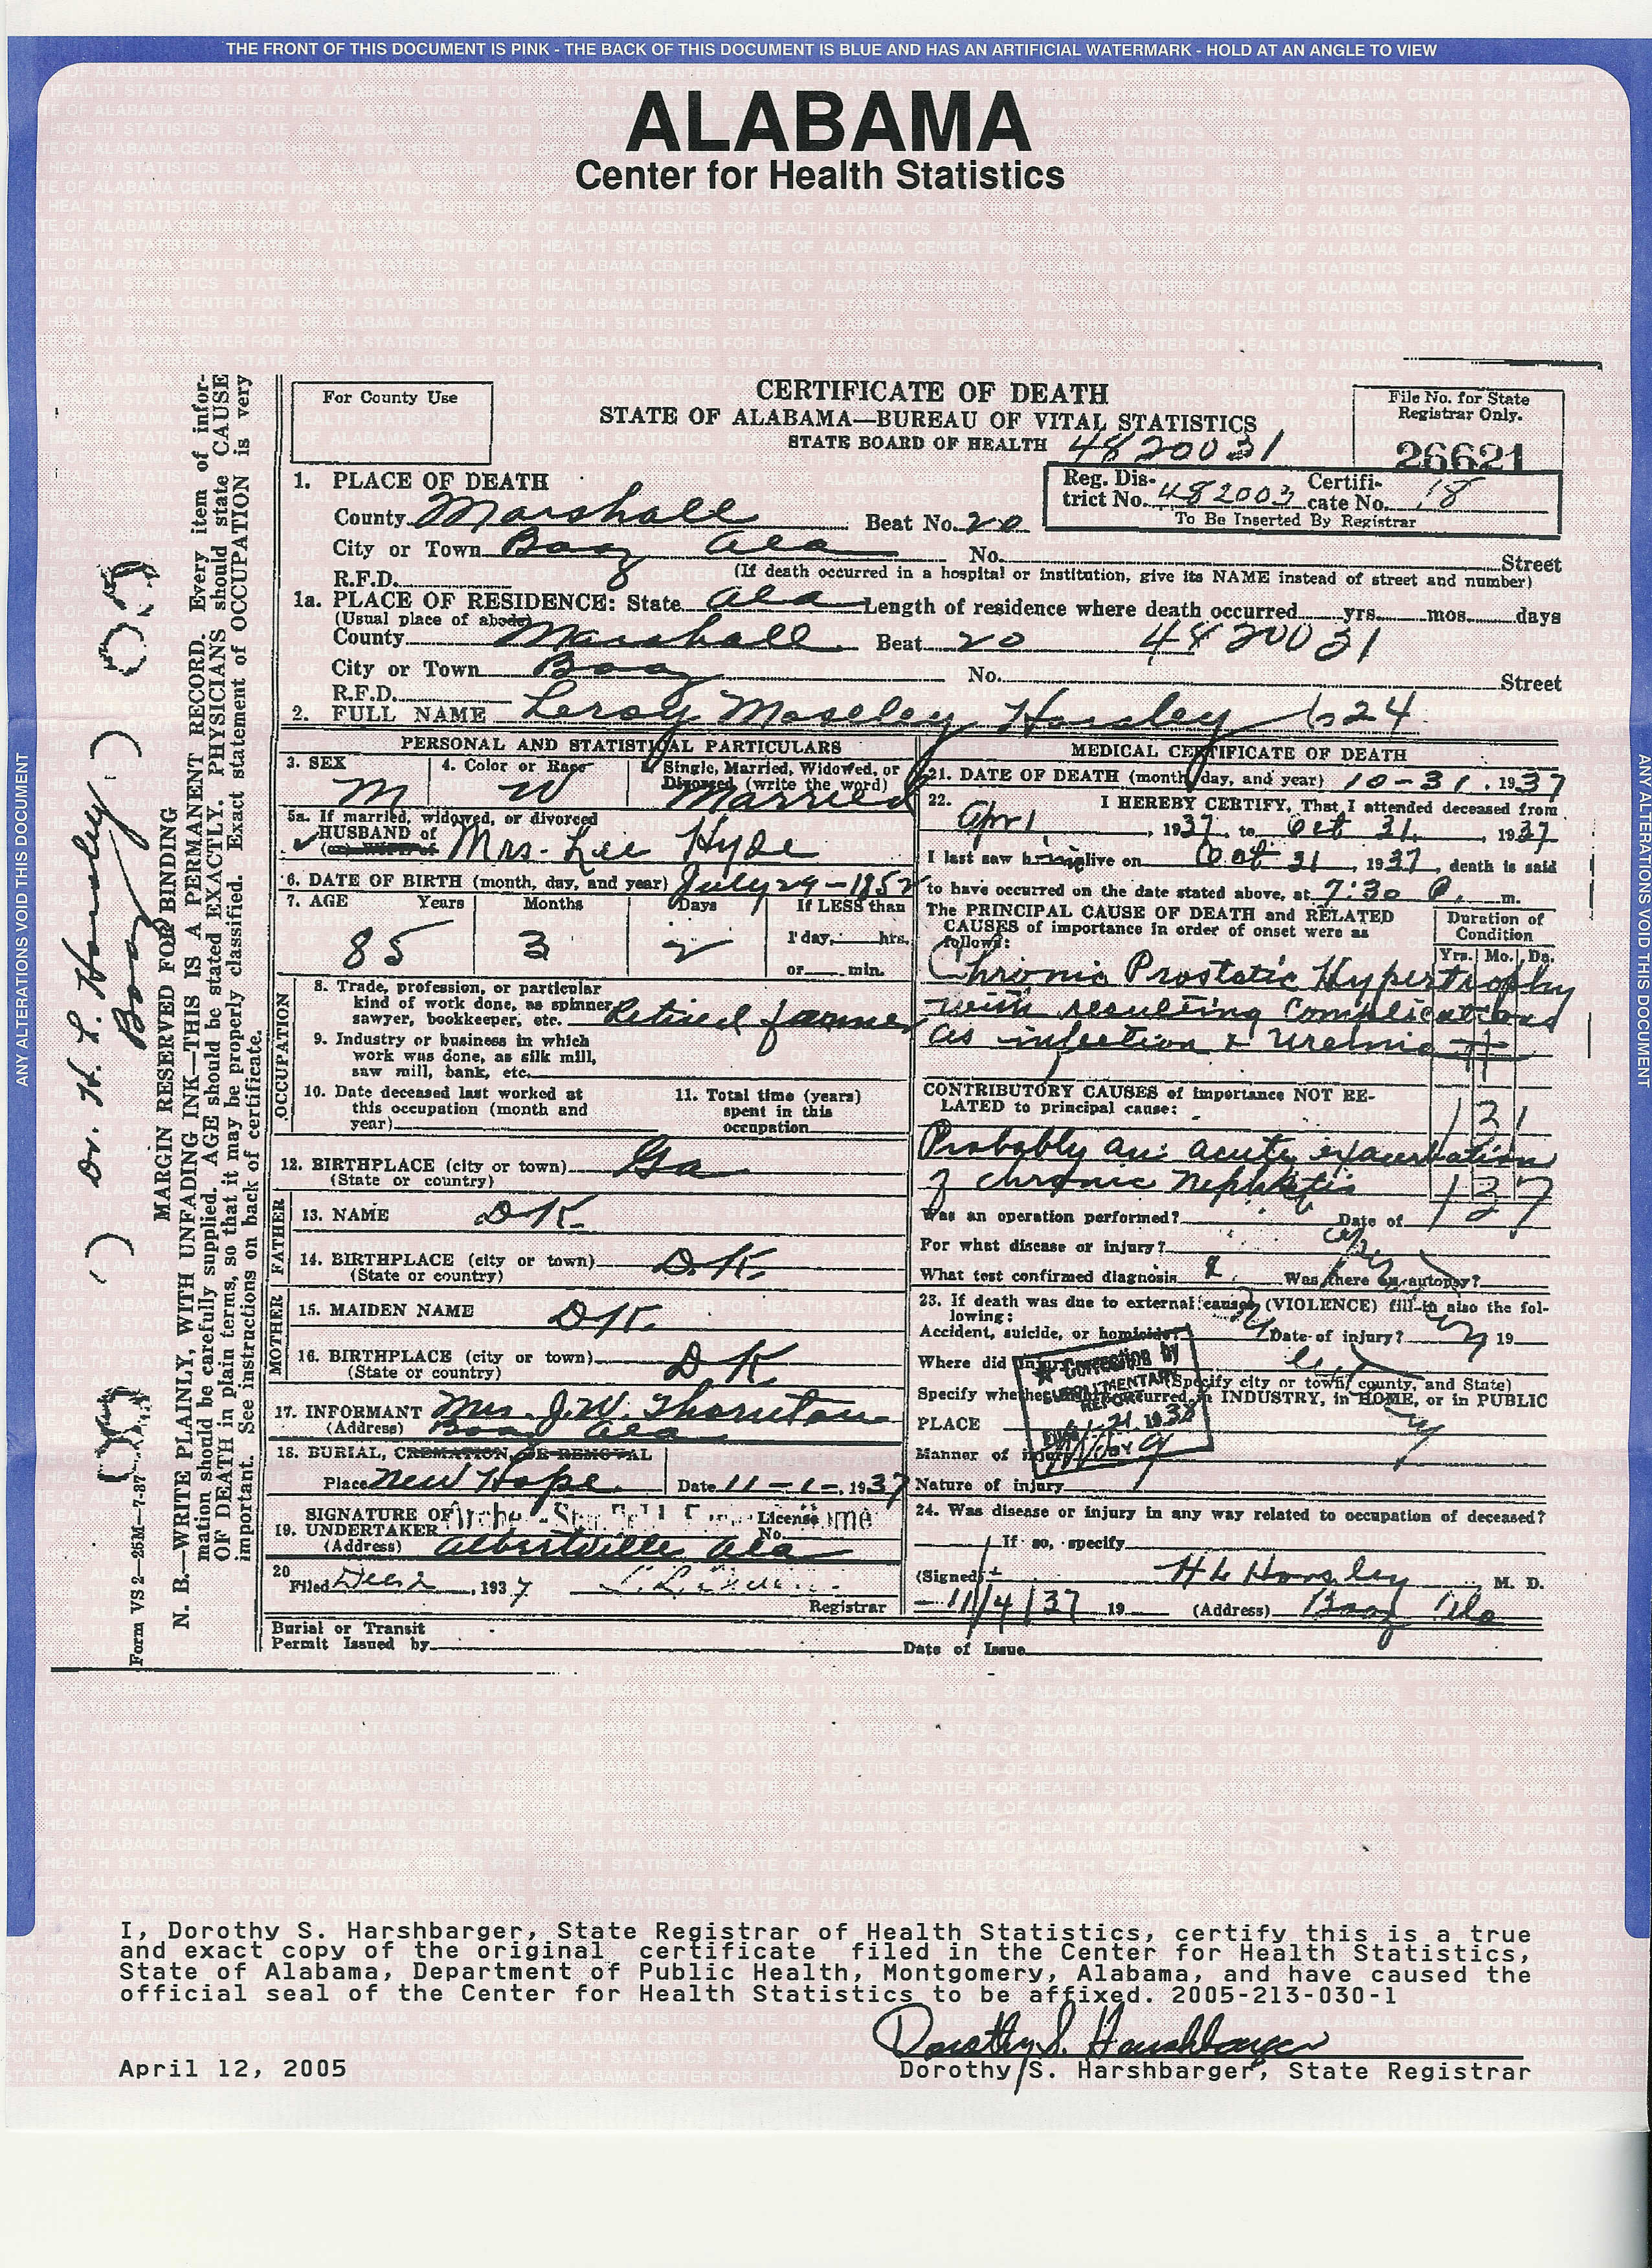 THE FRONT OF THIS DOCUMENT IS PINK - THE BACK OF THIS DOCUMENT IS BLUE AND HAS AN ARTIFICIAL WATERMARK - HOLD AT AN ANGLE TO VIEW
ALABAMA
Center for Health Statistics
For County Use
CERTIFICATE OF DEATH
STATE OF ALABAMA—BUREAU OF VITAL STATISTICS
STATE BOARD OF HEALTH 4820031
File No. for State
Registrar Only.
26621
Reg. District No. 482003 Certificate No. 18
To Be Inserted By Registrar
1. PLACE OF DEATH
County Marshall Beat No. 20
City or Town Boaz Ala No. Street
R.F.D. (If death occurred in a hospital or institution, give its NAME instead of street and number)
1a. PLACE OF RESIDENCE: State Ala Length of residence where death occurred yrs. mos. days
(Usual place of abode)
County Marshall Beat 20 4820031
City or Town Boaz No. Street
R.F.D.
2. FULL NAME Leroy Moseley Horsley 624
PERSONAL AND STATISTICAL PARTICULARS
3. SEX M
4. Color or Race W
5. Single, Married, Widowed, or Divorced (write the word) Married
5a. If married, widowed, or divorced
HUSBAND of
(or) WIFE of Mrs. Lee Hyde
6. DATE OF BIRTH (month, day, and year) July 29-1852
7. AGE Years Months Days If LESS than
85 3 2 1 day, hrs.
or min.
OCCUPATION
8. Trade, profession, or particular
kind of work done, as spinner
sawyer, bookkeeper, etc. Retired farmer
9. Industry or business in which
work was done, as silk mill,
saw mill, bank, etc.
10. Date deceased last worked at
this occupation (month and
year)
11. Total time (years)
spent in this
occupation
12. BIRTHPLACE (city or town) Ga
(State or country)
FATHER
13. NAME D.K.
14. BIRTHPLACE (city or town) D.K.
(State or country)
MOTHER
15. MAIDEN NAME D.K.
16. BIRTHPLACE (city or town) D K
(State or country)
17. INFORMANT Mrs. J.W. Thornton
(Address) Boaz Ala
18. BURIAL, CREMATION, OR REMOVAL
Place New Hope Date 11-1-, 1937
SIGNATURE OF
19. UNDERTAKER License No.
(Address) Albertville Ala
20
Filed Dec 2, 1937
Registrar
Burial or Transit
Permit Issued by Date of Issue
MEDICAL CERTIFICATE OF DEATH
21. DATE OF DEATH (month, day, and year) 10-31, 1937
22. I HEREBY CERTIFY, That I attended deceased from
Apr 1, 1937, to Oct 31, 1937
I last saw him alive on Oct 31, 1937, death is said
to have occurred on the date stated above, at 7:30 P. m.
The PRINCIPAL CAUSE OF DEATH and RELATED
CAUSES of importance in order of onset were as
follows:
Duration of
Condition
Yrs. Mo. Da.
Chronic Prostatic Hypertrophy
with resulting complications
as infection & Uremia
CONTRIBUTORY CAUSES of importance NOT RELATED to principal cause:
131
Probably an acute exacerbation
of chronic nephritis 137
Was an operation performed? Date of
For what disease or injury?
What test confirmed diagnosis Was there an autopsy?
23. If death was due to external causes (VIOLENCE) fill in also the following:
Accident, suicide, or homicide? Date of injury? 19
Where did injury
(Specify city or town, county, and State)
Specify whether occurred in INDUSTRY, in HOME, or in PUBLIC
PLACE
Correction by
SUPPLIMENTARY
REPORT
Manner of injury
Nature of injury
24. Was disease or injury in any way related to occupation of deceased?
If so, specify
(Signed) H L Horsley M. D.
11/4/37 19 (Address) Boaz Ala
Dr. H. L. Horsley
Boaz
MARGIN RESERVED FOR BINDING
N. B.—WRITE PLAINLY, WITH UNFADING INK—THIS IS A PERMANENT RECORD. Every item of information should be carefully supplied. AGE should be stated EXACTLY. PHYSICIANS should state CAUSE OF DEATH in plain terms, so that it may be properly classified. Exact statement of OCCUPATION is very important. See instructions on back of certificate.
Form VS 2—25M—7-37
ANY ALTERATIONS VOID THIS DOCUMENT
ANY ALTERATIONS VOID THIS DOCUMENT
I, Dorothy S. Harshbarger, State Registrar of Health Statistics, certify this is a true
and exact copy of the original certificate filed in the Center for Health Statistics,
State of Alabama, Department of Public Health, Montgomery, Alabama, and have caused the
official seal of the Center for Health Statistics to be affixed. 2005-213-030-1
Dorothy S. Harshbarger
April 12, 2005 Dorothy S. Harshbarger, State Registrar